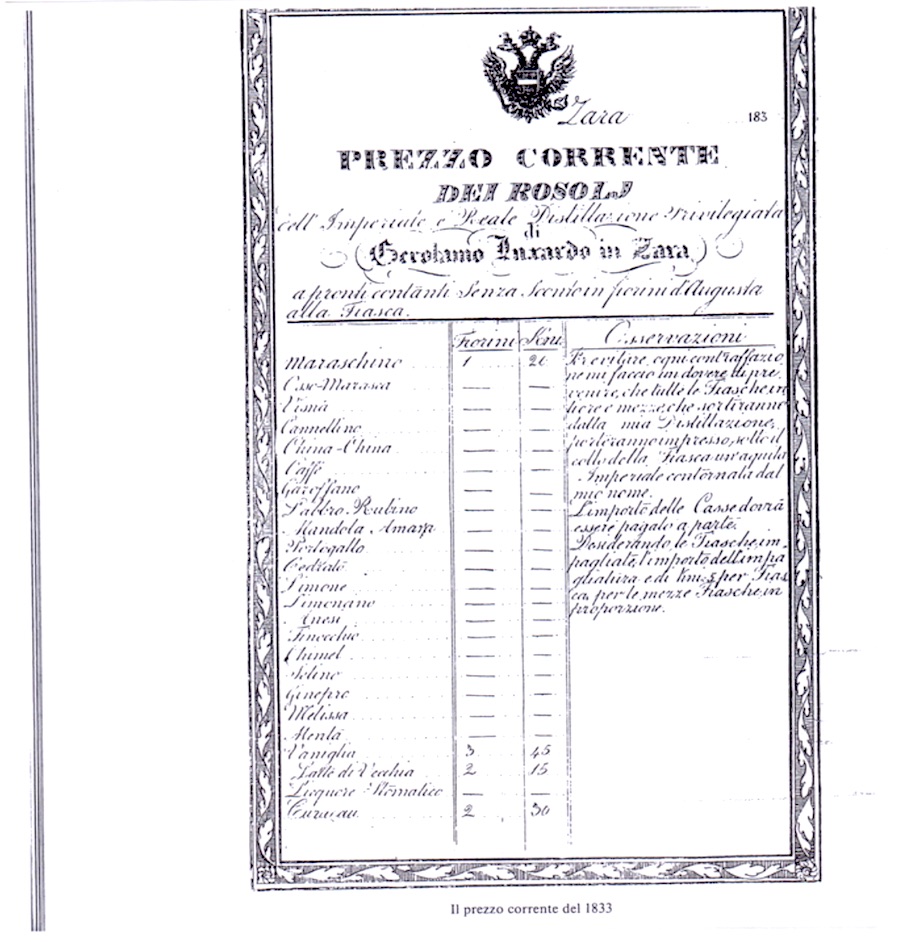 Zara 183
PREZZO CORRENTE
DEI ROSOLJ
dell'Imperiale e Reale Distillazione Privilegiata
di
Gerolamo Luxardo in Zara
a pronti contanti Senza Sconto in fiorini d'Augusta
alla Fiasca.
Fiorini
Osservazioni
Maraschino 1 20
Osso-Marasca — —
Visna — —
Cannellino — —
China-China — —
Caffé — —
Garoffano — —
Labbro-Rubino — —
Mandola Amara — —
Portogallo — —
Cedrato — —
Limone — —
Limonano — —
Anesi — —
Finocchio — —
Chimel — —
Selino — —
Ginepro — —
Melissa — —
Menta — —
Vaniglia 3 45
Latte di Vecchia 2 15
Liquore Stomatico — —
Curacau 2 30
Per evitare, ogni contraffazio
ne mi faccio un dovere di pre
venire, che tutte le Fiasche, in
tiere e mezze, che sortiranno
dalla mia Distillazione,
porteranno impresso, sotto il
collo della Fiasca un'aquila
Imperiale contornata dal
mio nome.
L'importo delle Casse dovrà
essere pagato a parte.
Desiderando, le Fiasche, im-
pagliate, l'importo dell'impa
gliatura e di 5 per Fias
ca, per le mezze Fiasche, in
proporzione.
Il prezzo corrente del 1833